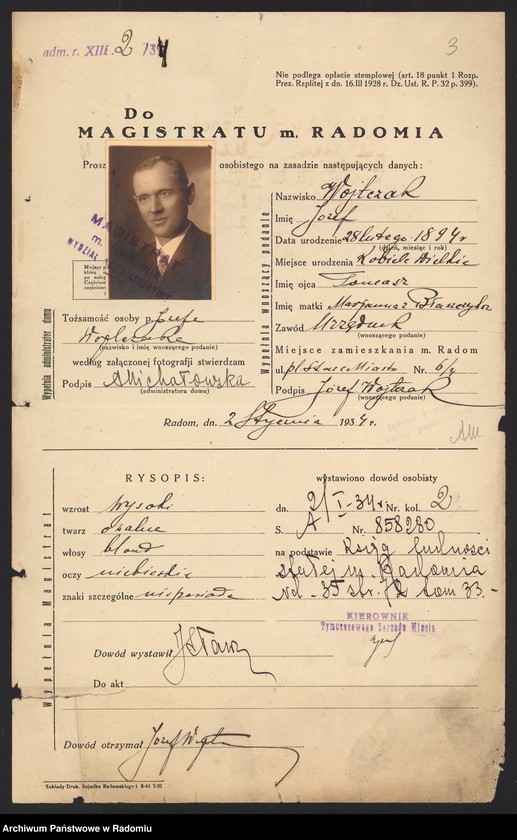 adm. r. XIII. 2 /34
3
Nie podlega opłacie stemplowej (art. 18 punkt 1 Rozp.
Prez. Rzplitej z dn. 16.III 1928 r. Dz. Ust. R. P. 32 p. 399).
Do
MAGISTRATU m. RADOMIA
Prosz osobistego na zasadzie następujących danych:
MAGISTRAT
m.
WYDZIAŁ
Wypełnia wnoszący podanie
Nazwisko Wojtczak
Imię Józef
Data urodzenia 28 lutego 1894 r
(dzień, miesiąc i rok)
Miejsce urodzenia Kobiele Wielkie
Imię ojca Tomasz
Imię matki Marjanna z
Zawód Urzędnik
(wnoszącego podanie)
Miejsce zamieszkania m. Radom
ul. pl. Stare Miasto Nr. 6/4
Podpis Józef Wojtczak
(wnoszącego podanie)
Wypełnia administrator domu
Tożsamość osoby p. Józefa
Wojtczaka
(nazwisko i imię wnoszącego podanie)
według załączonej fotografii stwierdzam
Podpis AMichałowska
(administratora domu)
Radom, dn. 2 Stycznia 1934 r.
Wypełnia Magistrat
RYSOPIS:
wzrost wysoki
twarz owalna
włosy blond
oczy niebieskie
znaki szczególne nieposiada
wystawiono dowód osobisty
dn. 2/I-34 r. Nr. kol. 2
S. A Nr. 858280
na podstawie Ksiąg ludności
stałej m. Radomia
Nd - 35 str. 72 tom 33.-
KIEROWNIK
Tymczasowego Zarządu Miasta
Dowód wystawił
Do akt
Dowód otrzymał Józef
Zakłady Druk. Sejmiku Radomskiego i S-ki 7-31
Archiwum Państwowe w Radomiu